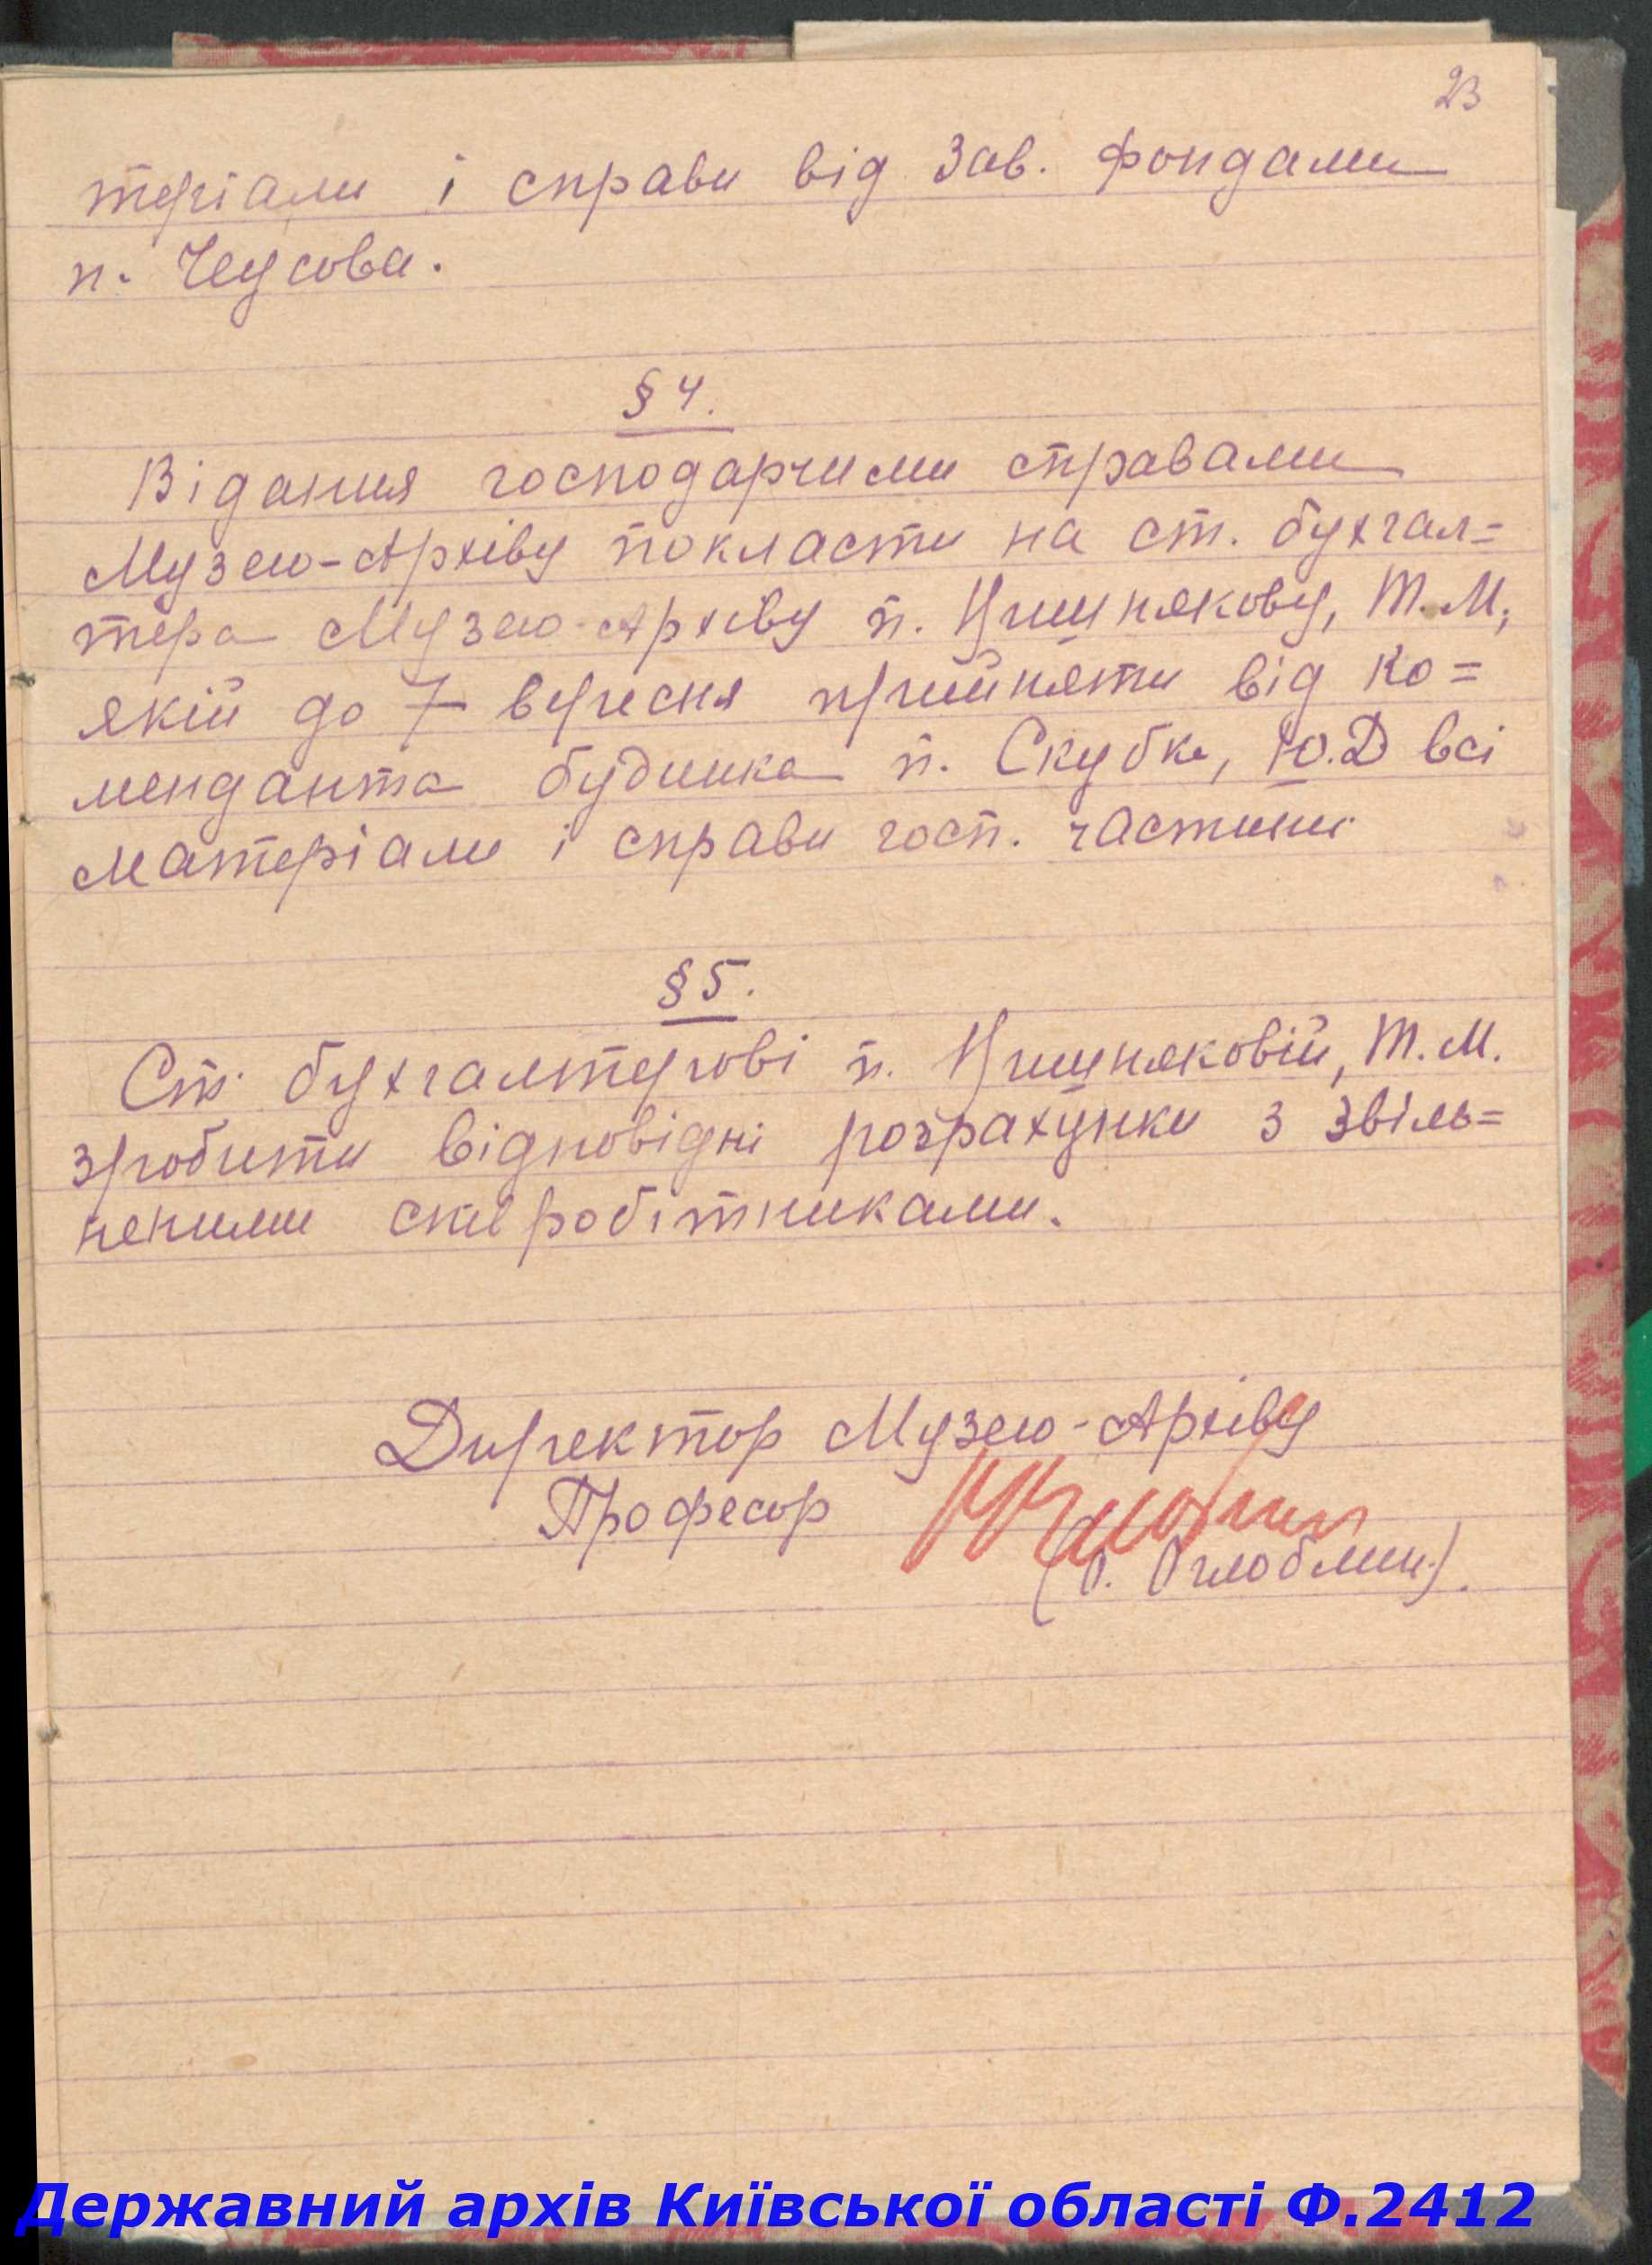 23
теріали і справи від Зав. фондами
п. Чеусова.
§ 4.
Відання господарчими справами
Музею-Архіву покласти на ст. бухгал=
тера Музею-Архіву п. Т.М.,
якій до 7 вересня прийняти від ко=
менданта будинка п. Скубка, Ю.Д всі
матеріали і справи госп. частини
§ 5.
Ст. бухгалтерові п. Т.М.
зробити відповідні розрахунки з звіль=
неними співробітниками.
Директор Музею-Архіву
Професор
(О. Оглоблин).
Державний архів Київської області Ф.2412